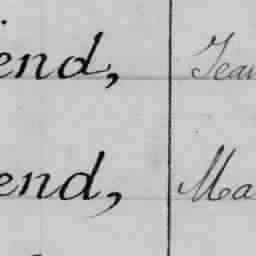 end, Jean
end, Ma